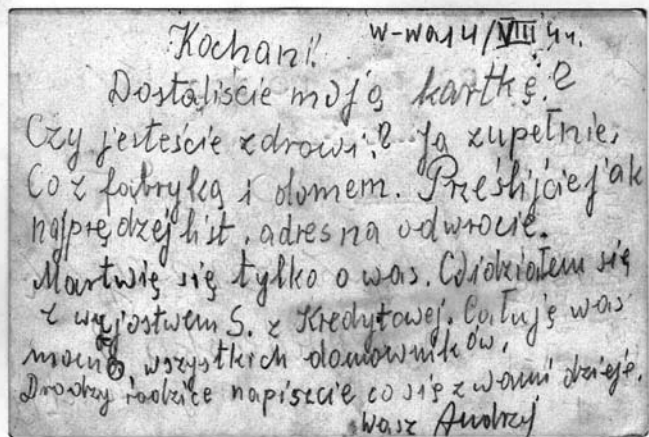 Kochani! W-wa 14/VIII 44.
Dostaliście moją kartkę?
Czy jesteście zdrowi? Ja zupełnie.
Co z fabryką i domem. Prześlijcie jak
najprędzej list, adres na odwrocie.
Martwię się tylko o was. Widziałem się
z wujostwem S. z Kredytowej. Całuję was
mocno wszystkich domowników.
Drodzy rodzice napiszcie co się z wami dzieje.
Wasz Andrzej